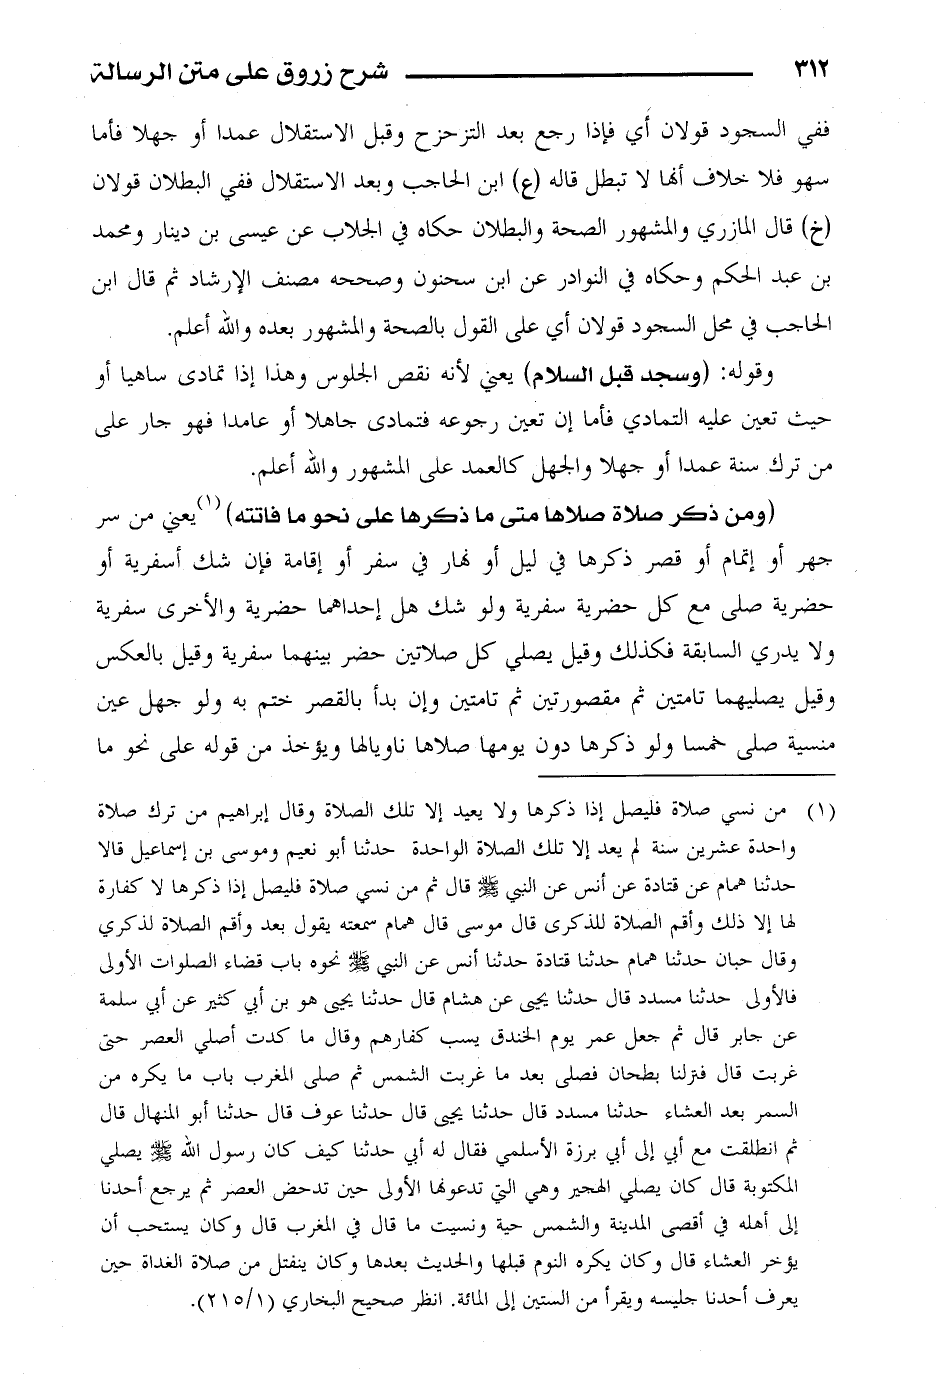 ٣١٢ شرح زروق على متن الرسالة
ففي السجود قولان أي فإذا رجع بعد التزحزح وقبل الاستقلال عمدا أو جهلا فأما
سهو فلا خلاف أنها لا تبطل قاله (ع) ابن الحاجب وبعد الاستقلال ففي البطلان قولان
(خ) قال المازري والمشهور الصحة والبطلان حكاه في الجلاب عن عيسى بن دينار ومحمد
بن عبد الحكم وحكاه في النوادر عن ابن سحنون وصححه مصنف الإرشاد ثم قال ابن
الحاجب في محل السجود قولان أي على القول بالصحة والمشهور بعده والله أعلم.
وقوله: (وسجد قبل السلام) يعني لأنه نقص الجلوس وهذا إذا تمادى ساهيا أو
حيث تعين عليه التمادي فأما إن تعين رجوعه فتمادى جاهلا أو عامدا فهو جار على
من ترك سنة عمدا أو جهلا والجهل كالعمد على المشهور والله أعلم.
(ومن ذكر صلاة صلاها متى ما ذكرها على نحو ما فاتته)(١) يعني من سر
جهر أو إتمام أو قصر ذكرها في ليل أو نهار في سفر أو إقامة فإن شك أسفرية أو
حضرية صلى مع كل حضرية سفرية ولو شك هل إحداهما حضرية والأخرى سفرية
ولا يدري السابقة فكذلك وقيل يصلي كل صلاتين حضر بينهما سفرية وقيل بالعكس
وقيل يصليهما تامتين ثم مقصورتين ثم تامتين وإن بدأ بالقصر ختم به ولو جهل عين
منسية صلى خمسا ولو ذكرها دون يومها صلاها ناويالها ويؤخذ من قوله على نحو ما
(١) من نسي صلاة فليصل إذا ذكرها ولا يعيد إلا تلك الصلاة وقال إبراهيم من ترك صلاة
واحدة عشرين سنة لم يعد إلا تلك الصلاة الواحدة حدثنا أبو نعيم وموسى بن إسماعيل قالا
حدثنا همام عن قتادة عن أنس عن النبي ﷺ قال ثم من نسي صلاة فليصل إذا ذكرها لا كفارة
لها إلا ذلك وأقم الصلاة للذكرى قال موسى قال همام سمعته يقول بعد وأقم الصلاة لذكري
وقال حبان حدثنا همام حدثنا قتادة حدثنا أنس عن النبي ﷺ نحوه باب قضاء الصلوات الأولى
فالأولى حدثنا مسدد قال حدثنا يحيى عن هشام قال حدثنا يحيى هو بن أبي كثير عن أبي سلمة
عن جابر قال ثم جعل عمر يوم الخندق يسب كفارهم وقال ما كدت أصلي العصر حتى
غربت قال فنزلنا بطحان فصلى بعد ما غربت الشمس ثم صلى المغرب باب ما يكره من
السمر بعد العشاء حدثنا مسدد قال حدثنا يحيى قال حدثنا عوف قال حدثنا أبو المنهال قال
ثم انطلقت مع أبي إلى أبي برزة الأسلمي فقال له أبي حدثنا كيف كان رسول الله ﷺ يصلي
المكتوبة قال كان يصلي الهجير وهي التي تدعونها الأولى حين تدحض العصر ثم يرجع أحدنا
إلى أهله في أقصى المدينة والشمس حية ونسيت ما قال في المغرب قال وكان يستحب أن
يؤخر العشاء قال وكان يكره النوم قبلها والحديث بعدها وكان ينفتل من صلاة الغداة حين
يعرف أحدنا جليسه ويقرأ من الستين إلى المائة. انظر صحيح البخاري (٢١٥/١).